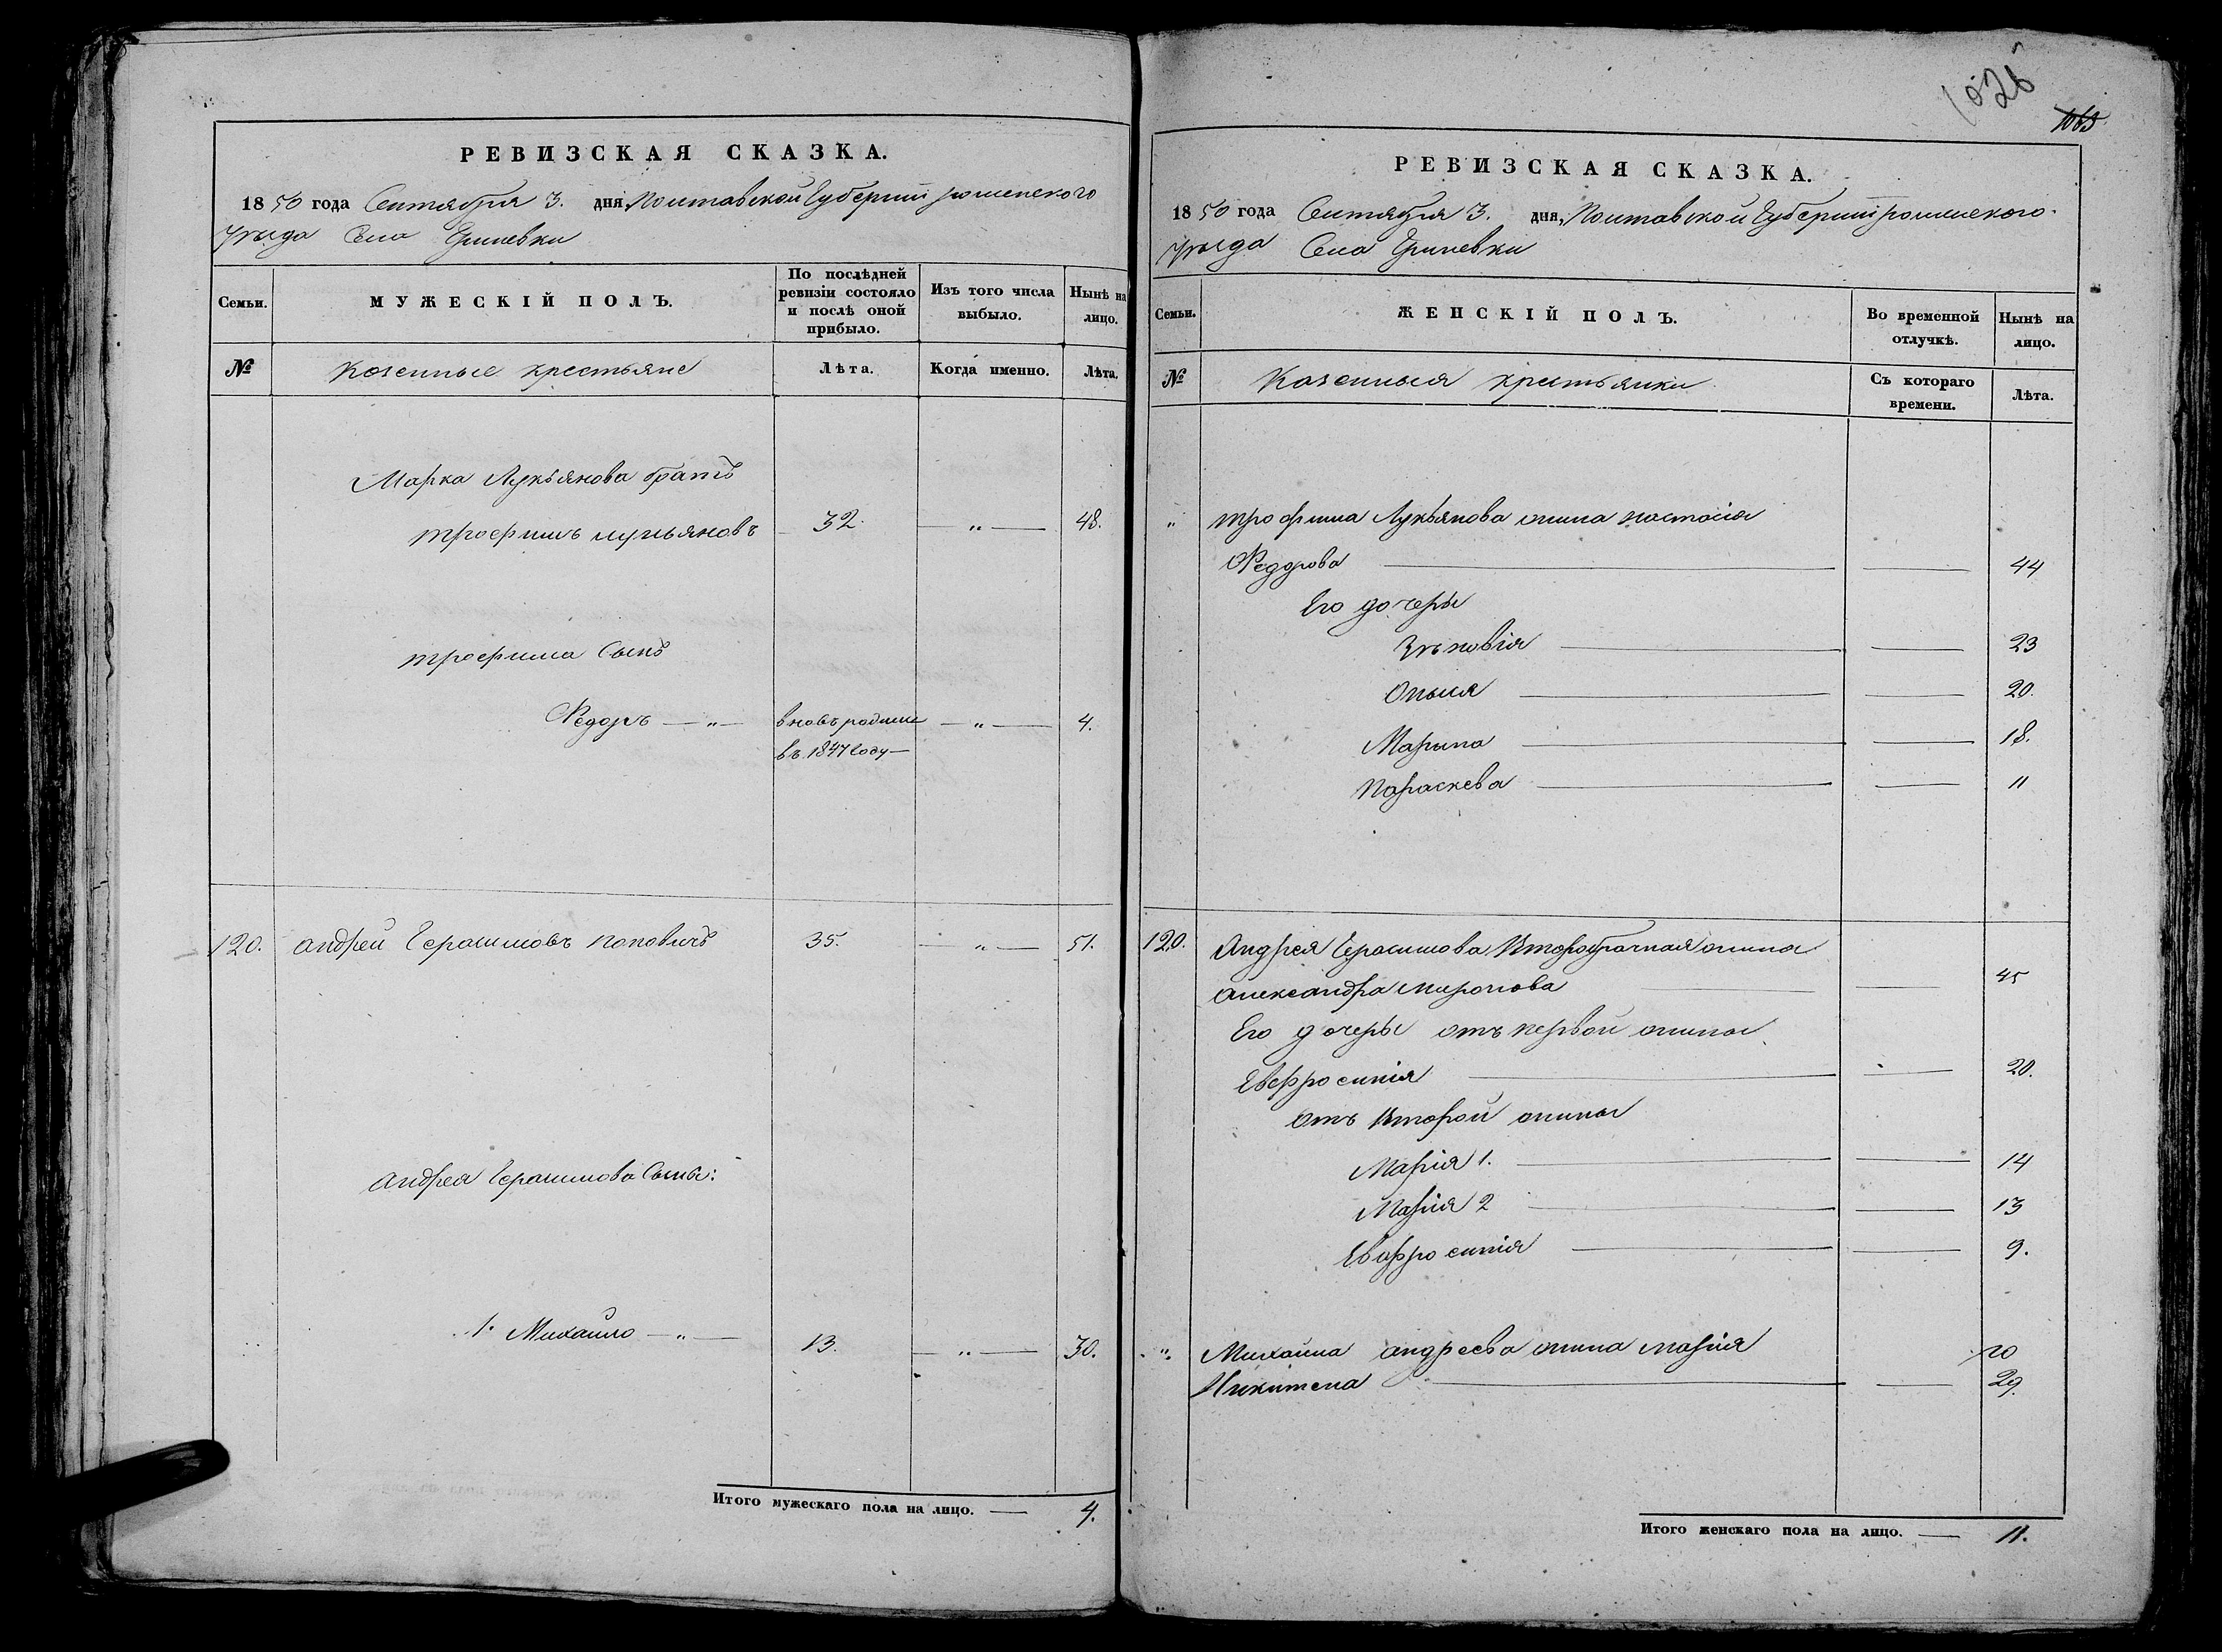 РЕВИЗСКАЯ СКАЗКА.
1850 года Сентября 3. дня, Полтавской Губерніи роменского
уѣзда Села
МУЖЕСКІЙ ПОЛЪ.
Семьи.
По послѣдней
ревизіи состояло
и послѣ оной
прибыло.
Изъ того числа
выбыло.
Нынѣ на
лицо.
№
Козенные крестьяне
Лѣта.
Когда именно.
Лѣта.
Марка Лукьянова братъ
трофимъ лукьяновъ 32. — " — 48.
трофима Сынъ
Федоръ — " — вновь родился — " — 4.
въ 1847 Году —
120. андрей Герасимовъ поповичъ 35. — " — 51.
андрея Герасимова Сыны:
1. Михайло — " — 13. — " — 30.
Итого мужескаго пола на лицо. — 4.
1026
1063
РЕВИЗСКАЯ СКАЗКА.
1850 года Сентября 3. дня, Полтавской Губерніи роменского
уѣзда Села
Семьи.
ЖЕНСКІЙ ПОЛЪ.
Во временной
отлучкѣ.
Нынѣ на
лицо.
№
Козенныя крестьянки
Съ котораго
времени.
Лѣта.
" трофима Лукьянова жина настасія
Федорова — — 44
Его дочеры
Зѣновія — — 23
— — 20.
Марына — — 18.
Параскева — — 11
120. Андрея Герасимова Второбрачная жина
александра миронова — — 45
Его дочеры отъ первой жины
Евфросинія — — 20.
отъ Второй жины
Марія 1. — — 14
Марія 2 — — 13
Евфросинія — — 9.
" Михайла андреева жина марія 20
Никитена — — 29.
Итого женскаго пола на лицо. — 11.